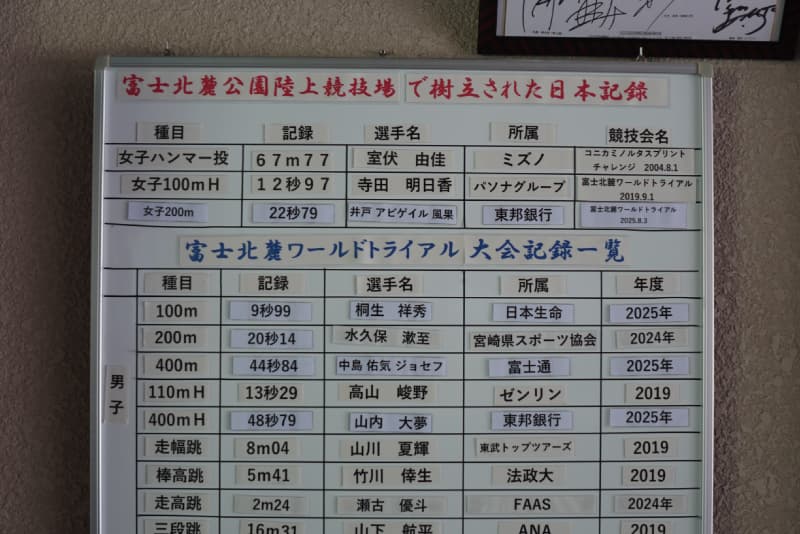 富士北麓公園陸上競技場 で樹立された日本記録
種目 記録 選手名 所属 競技会名
女子ハンマー投 67m77 室伏 由佳 ミズノ コニカミノルタスプリント
チャレンジ 2004.8.1
女子100mH 12秒97 寺田 明日香 パソナグループ 富士北麓ワールドトライアル
2019.9.1
女子200m 22秒79 井戸 アビゲイル 風果 東邦銀行 富士北麓ワールドトライアル
2025.8.3
富士北麓ワールドトライアル 大会記録一覧
種目 記録 選手名 所属 年度
男子
100m 9秒99 桐生 祥秀 日本生命 2025年
200m 20秒14 水久保 漱至 宮崎県スポーツ協会 2024年
400m 44秒84 中島 佑気 ジョセフ 富士通 2025年
110mH 13秒29 高山 峻野 ゼンリン 2019
400mH 48秒79 山内 大夢 東邦銀行 2025年
走幅跳 8m04 山川 夏輝 東武トップツアーズ 2019
棒高跳 5m41 竹川 倖生 法政大 2019
走高跳 2m24 瀬古 優斗 FAAS 2024年
三段跳 16m31 山下 航平 ANA 2019